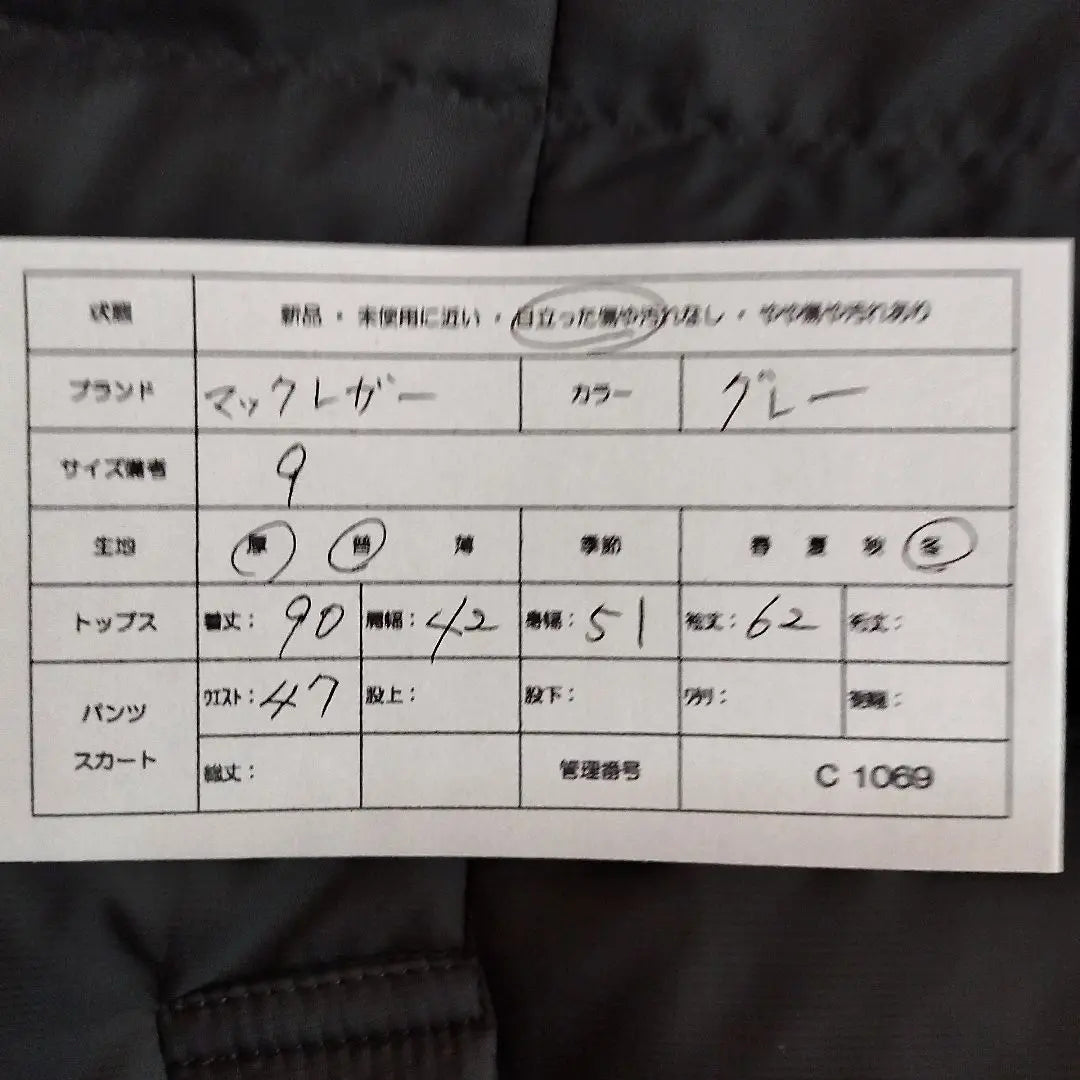 状態 新品・未使用に近い・目立った傷や汚れなし・やや傷や汚れあり
ブランド マックレガー カラー グレー
サイズ備考 9
生地 厚 普 薄 季節 春 夏 秋 冬
トップス 着丈: 90 肩幅: 42 身幅: 51 裄丈: 62
パンツ
スカート
ウエスト: 47 股上: 股下: ワタリ:
総丈: 管理番号 C 1069